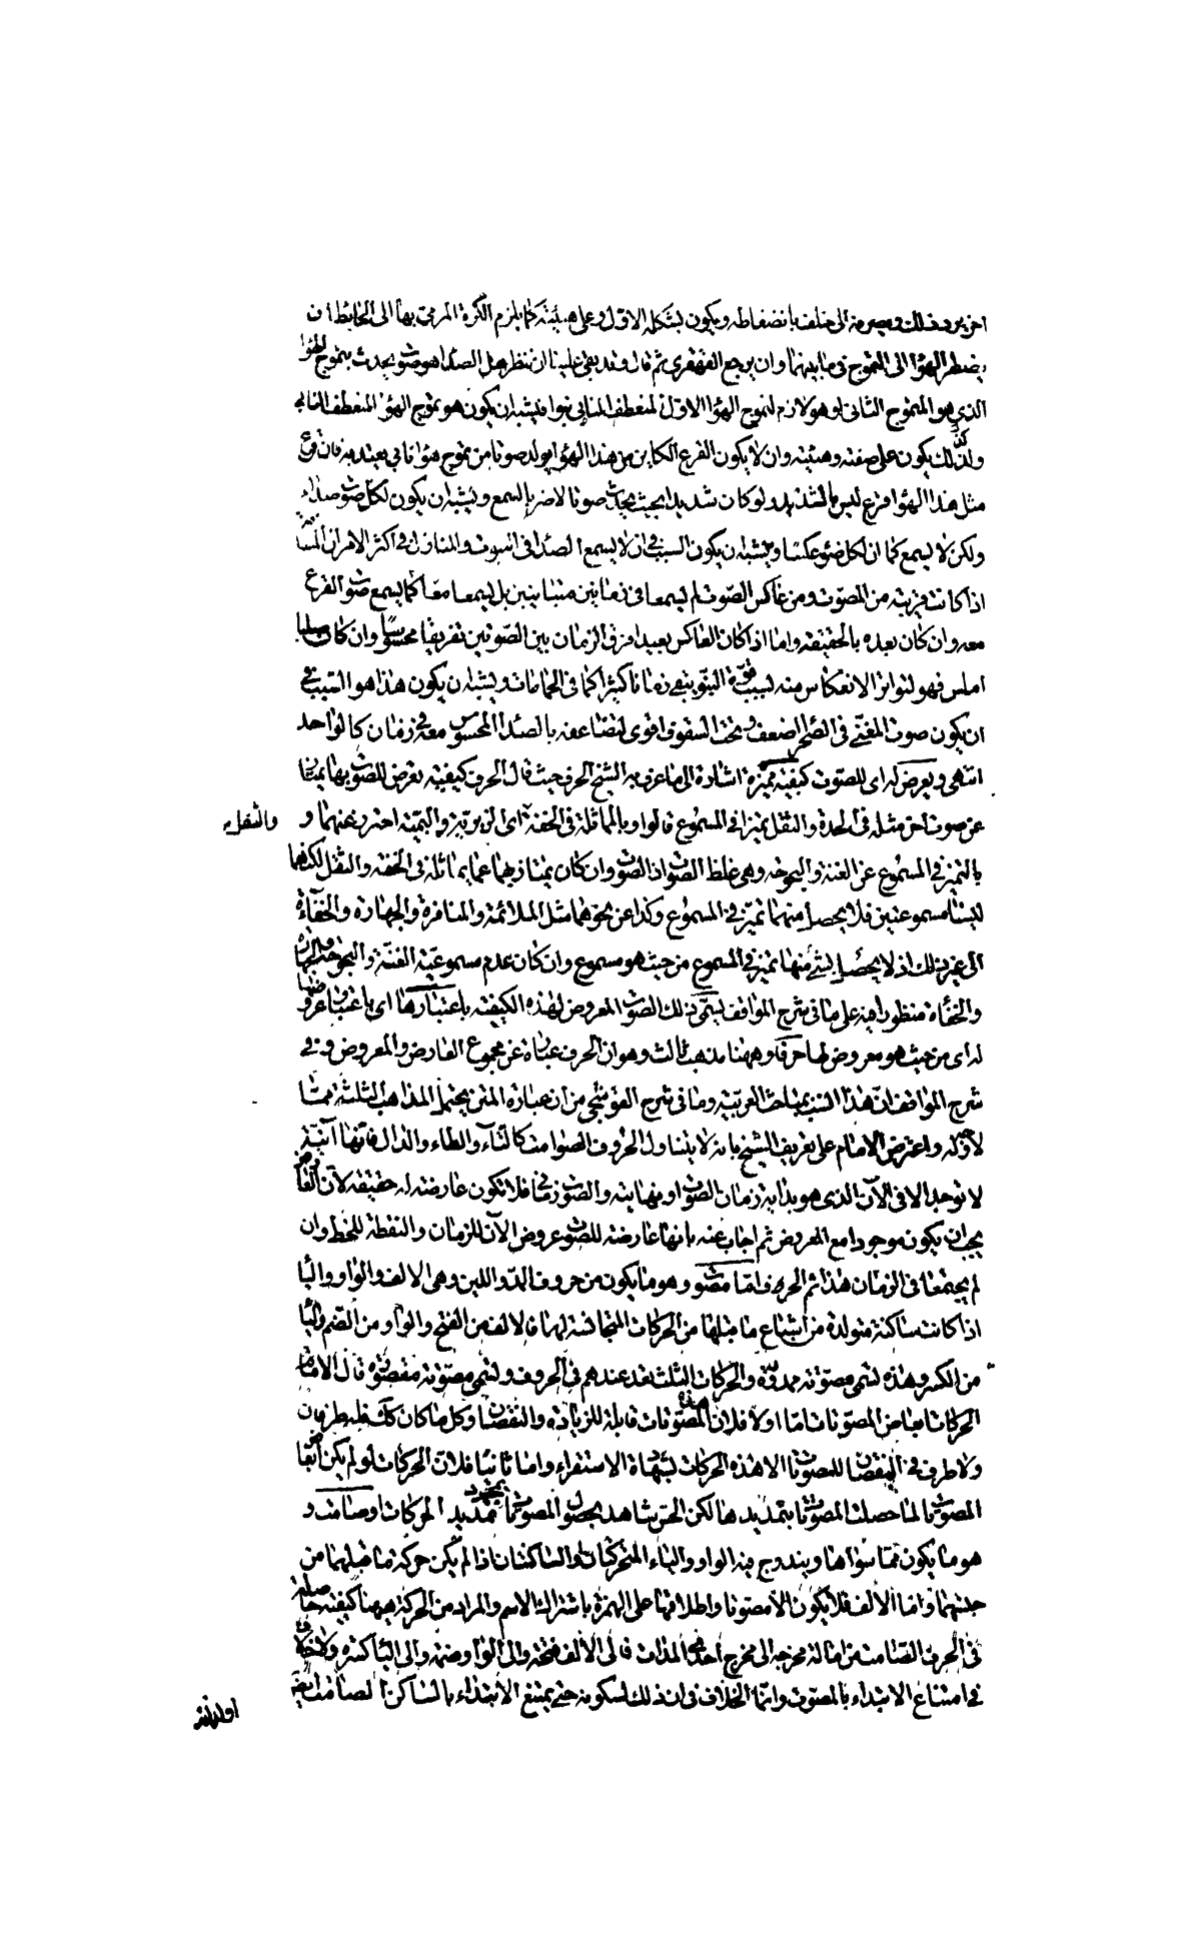 اخر يرد ذلك ويصرفه الى خلف بانضغاطه ويكون شكله الاول وعلى هيئته كما يلزم الكرة المرمى بها الى الحائط ان
يضطر الهواء الى التموج فى ما بينهما وان يرجع القهقرى ثم قال وقد بقى علينا ان ننظر هل الصدا هو صوت يحدث بتموج الهواء
الذى هو المتموج الثانى او هو لازم لتموج الهواء الاول المنعطف النابى نبوا فيشبه ان يكون هو تموج الهواء المنعطف النابى
ولذلك يكون على صفته وهيئته وان لا يكون القرع الكاين من هذا الهواء يولد صوتا من تموج هواء ثانى يعتد به فان قرع
مثل هذا الهواء قرع ليس بالشديد ولو كان شديدا بحيث يحدث صوتا لاضر بالسمع ويشبه ان يكون لكل صوت صداء
ولكن لا يسمع كما ان لكل ضوء عكسا ويشبه ان يكون السبب فى ان لا يسمع الصدا فى البيوت والمنازل فى اكثر الامر ان المسافة
اذا كانت قريبة من المصوت ومن عاكس الصوت لم يسمعا فى زمانين متباينين بل يسمعا معا كما يسمع صوت القرع
معه وان كان بعده بالحقيقة واما اذا كان العاكس بعيدا فرق الزمان بين الصوتين تفريقا محسوسا وان كان صلبا
املس فهو لتواتر الانعكاس منه بسبب قوة النبو يبقى زمانا كثيرا كما فى الحمامات ويشبه ان يكون هذا هو السبب فى
ان يكون صوت المغنى فى الصحراء اضعف وتحت السقوف اقوى لتضاعفه بالصدا المحسوس معه فى زمان كالواحد
انتهى ويعرض له اى للصوت كيفية مميزة اشارة الى ما عرف به الشيخ الحرف حيث قال الحرف كيفية تعرض للصوت بها يمتاز
عن صوت اخر مثله فى الحدة والثقل تميزا فى المسموع قالوا وبالمماثلة فى الخفة اى الزيرية والبمية احترز عنهما و
والثقل
بالتميز فى المسموع عن الغنة والبحوحة وهى غلظ الصوت اذ الصوت وان كان يمتاز بهما عما يماثله فى الخفة والثقل لكنهما
ليستا مسموعتين فلا يحصل منهما تميز فى المسموع وكذا عن نحوهما مثل الملائمة والمنافرة والجهارة والخفاءة
الى غير ذلك اذ لا يحصل بشئ منها تميز فى المسموع من حيث هو مسموع وان كان عدم مسموعية الغنة والبحوحة
والخفاء منظورا فيه على ما فى شرح المواقف يسمى ذلك الصوت المعروض لهذه الكيفية باعتبارها اى باعتبار عروضها
له اى من حيث هو معروض لها حرفا وههنا مذهب ثالث وهو ان الحرف عبارة عن مجموع العارض والمعروض وفى
شرح المواقف ان هذا انسب بمباحث العربية وما فى شرح القوشجى من ان عبارة المتن يحتمل المذاهب الثلثة مما
لا وجه له واعترض الامام على تعريف الشيخ بانه لا يتناول الحروف الصوامت كالتاء والطاء والدال فانها آنية
لا توجد الا فى الآن الذى هو بداية زمان الصوت او نهايته والصوت زمانى فلا تكون عارضة له حقيقة لان العارض
يجب ان يكون موجودا مع المعروض ثم اجاب عنه بانها عارضة للصوت عروض الآن للزمان والنقطة للخط وان
لم يجتمعا فى الزمان هذا ثم الحرف اما مصوت وهو ما يكون من حروف المد واللين وهى الالف والواو والياء
اذا كانت ساكنة متولدة من اشباع ما قبلها من الحركات المتجانسة لها فالالف من الفتح والواو من الضم والياء
من الكسر وهذه تسمى مصوتة ممدودة والحركات الثلث تعد عندهم فى الحروف وتسمى مصوتة مقصورة قال الامام
الحركات ابعاض المصوتات اما اولا فلان المصوتات قابلة للزيادة والنقصان وكل ما كان كك فله طرفان
ولا طرف فى النقصان للمصوتات الا هذه الحركات بشهادة الاستقراء واما ثانيا فلان الحركات لو لم يكن ابعاض
المصوتات لما حصلت المصوتات بتمديدها لكن الحس شاهد بحصول المصوتات بمجرد تمديد الحركات او صامت و
هو ما يكون مما سواها ويندرج فيه الواو والياء المتحركتان او الساكنتان اذا لم يكن حركة ما قبلهما من
جنسهما واما الالف فلا يكون الا مصوتا واطلاقها على الهمزة باشتراك الاسم والمراد من الحركة ههنا كيفية حاصلة
فى الحرف الصامت من امالة مخرجه الى مخرج احدى المدات فالى الالف فتحة والى الواو ضمة والى الياء كسرة ولا خلاف
فى امتناع الابتداء بالمصوت وانما الخلاف فى ان ذلك لسكونه حتى يمتنع الابتداء بالساكن الصامت ايضا
او لذاته